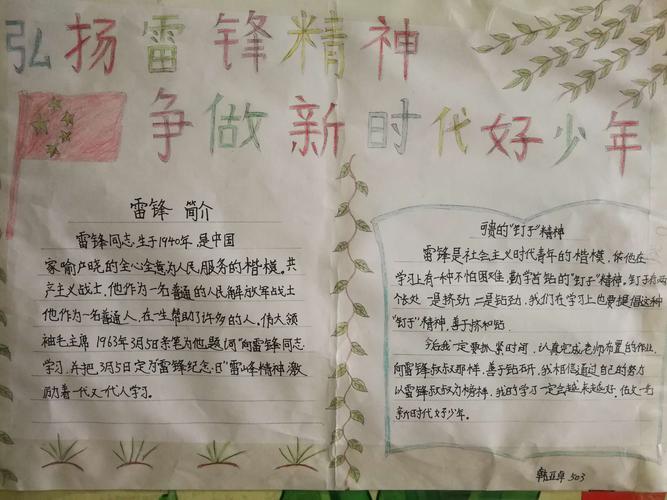 弘扬雷锋精神
争做新时代好少年
雷锋 简介
雷锋同志,生于1940年,是中国
家喻户晓的全心全意为人民服务的楷模。共
产主义战士,他作为一名普通的人民解放军战士
他作为一名普通人,在一生帮助了许多的人,伟大领
袖毛主席1963年3月5日亲笔为他题词"向雷锋同志
学习,并把3月5日定为"雷锋纪念日"雷峰精神激
励着一代又一代人学习。
可贵的"钉子"精神
雷锋是社会主义时代青年的楷模,他在
学习上有一种不怕困难,勤学苦钻的"钉子"精神。钉子有两
个长处 一是挤劲 二是钻劲,我们在学习上也要提倡这种
"钉子"精神,善于挤和钻
今后我一定要抓紧时间,认真完成老师布置的作业,
向雷锋叔叔那样,善于钻研,我相信通过自己的努力
以雷锋叔叔为榜样,我的学习一定会越来越好,做文一名
新时代好少年。
韩亚卓 503